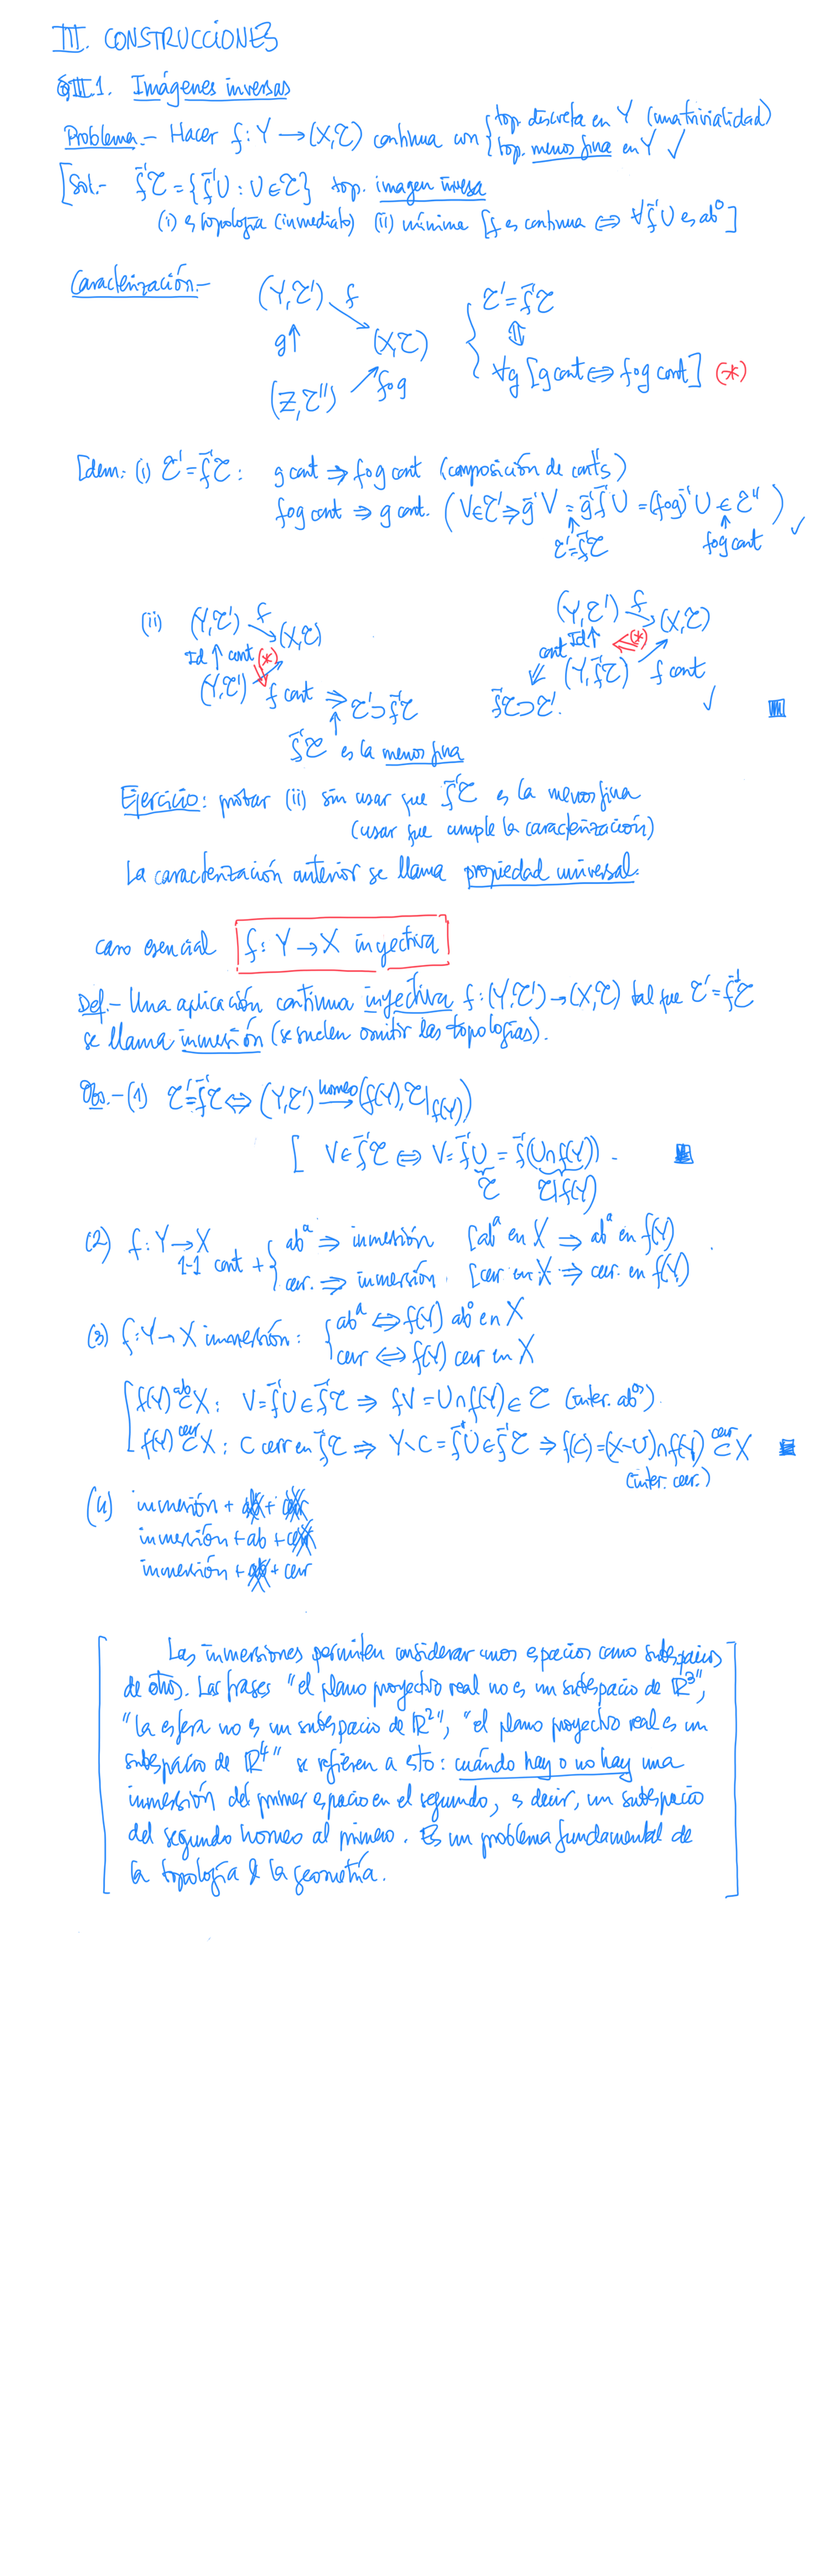 III. CONSTRUCCIONES
§III.1. Imágenes inversas
Problema.- Hacer f: Y → (X,τ) continua con { top. discreta en Y (una trivialidad)
top. menos fina en Y ✓
[Sol.- f⁻¹τ = {f⁻¹U : U ∈ τ} top. imagen inversa
(i) es topología (inmediato) (ii) mínima [f es continua ⇔ ∀f⁻¹U es abº]
Caracterización.-
(Y,τ') f
τ' = f⁻¹τ
g↑ (X,τ)
⇕
(Z,τ'') f∘g
∀g [g cont ⇔ f∘g cont] (*)
[dem: (i) τ' = f⁻¹τ : g cont ⇒ f∘g cont (composición de contˢ)
f∘g cont ⇒ g cont. (V∈τ' ⇒ g⁻¹V = g⁻¹f⁻¹U = (f∘g)⁻¹U ∈ τ'') ✓
τ' = f⁻¹τ f∘g cont
(ii) (Y,τ') f (X,τ)
Id ↑ cont (*)
(Y,τ') f cont ⇒ τ' ⊃ f⁻¹τ
f⁻¹τ es la menos fina
(Y,τ') f (X,τ)
cont Id↑ (*)
(Y,f⁻¹τ) f cont
f⁻¹τ ⊃ τ'. ✓
Ejercicio: probar (ii) sin usar que f⁻¹τ es la menos fina
(usar que cumple la caracterización)
La caracterización anterior se llama propiedad universal.
caso esencial f: Y → X inyectiva
Def.- Una aplicación continua inyectiva f: (Y,τ') → (X,τ) tal que τ' = f⁻¹τ
se llama inmersión (se suelen omitir las topologías).
Obs.- (1) τ' = f⁻¹τ ⇔ (Y,τ') homeo→ (f(Y), τ|f(Y))
[ V ∈ f⁻¹τ ⇔ V = f⁻¹U = f⁻¹(U∩f(Y)) .
τ τ|f(Y)
(2) f: Y → X 1-1 cont + { abª ⇒ inmersión [abª en X ⇒ abª en f(Y)
cerr. ⇒ inmersión. [cerr en X ⇒ cerr. en f(Y)
(3) f: Y → X inmersión: { abª ⇔ f(Y) abº en X
cerr ⇔ f(Y) cerr en X
[ f(Y) ab⊂ X : V = f⁻¹U ∈ f⁻¹τ ⇒ fV = U∩f(Y) ∈ τ (inter. abºˢ).
f(Y) cerr⊂ X : C cerr en f⁻¹τ ⇒ Y∖C = f⁻¹U ∈ f⁻¹τ ⇒ f(C) = (X−U)∩f(Y) cerr⊂ X
(inter. cerr.)
(4) inmersión + ab + cerr
inmersión + ab + cerr
inmersión + ab + cerr
Las inmersiones permiten considerar unos espacios como subespacios
de otros. Las frases "el plano proyectivo real no es un subespacio de ℝ³",
"la esfera no es un subespacio de ℝ²", "el plano proyectivo real es un
subespacio de ℝ⁴" se refieren a esto: cuándo hay o no hay una
inmersión del primer espacio en el segundo, es decir, un subespacio
del segundo homeo al primero. Es un problema fundamental de
la topología & la geometría.